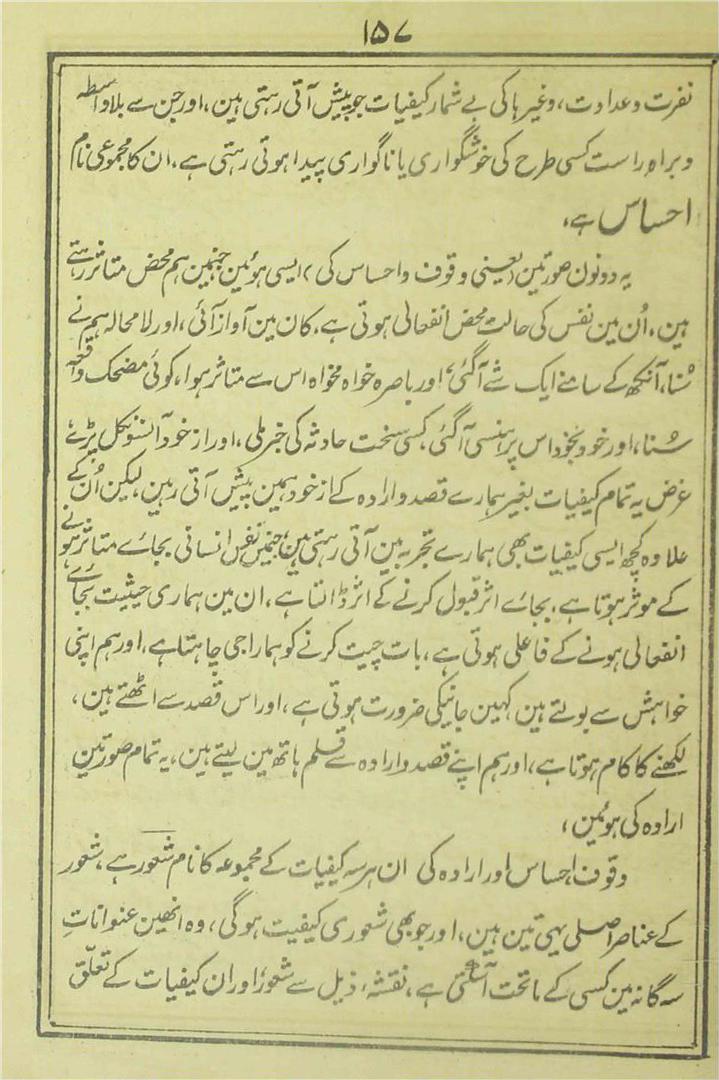 ۱۵۷
نفرت و عداوت، وغیرہا کی بے شمار کیفیات جو پیش آتی رہتی ہین، اور جن سے بلا واسطہ
و براہ راست کسی طرح کی خوشگواری یا ناگواری پیدا ہوتی رہتی ہے، ان کا مجموعی نام
احساس ہے،
یہ دونون صورتین (یعنی وقوف و احساس کی) ایسی ہوئین جنمین ہم محض متاثر رہتے
ہین، اُن مین نفس کی حالت محض انفعالی ہوتی ہے، کان مین آواز آئی، اور لا محالہ ہم نے
سُنا، آنکھ کے سامنے ایک شے آگئی، اور باصرہ خواہ مخواہ اس سے متاثر ہوا، کوئی مضحک واقعہ
سُنا، اور خود بخود اس پر ہنسی آگئی، کسی سخت حادثہ کی خبر ملی، اور از خود آنسو نکل پڑے،
غرض یہ تمام کیفیات بغیر ہمارے قصد و ارادہ کے از خود ہمین پیش آتی رہین، لیکن اُن کے
علاوہ کچھ ایسی کیفیات بھی ہمارے تجربہ مین آتی رہتی ہین، جنمین نفس انسانی بجائے متاثر ہونے
کے موثر ہوتا ہے، بجائے اثر قبول کرنے کے اثر ڈالتا ہے، ان مین ہماری حیثیت بجائے
انفعالی ہونے کے فاعلی ہوتی ہے، بات چیت کرنے کو ہمارا جی چاہتا ہے، اور ہم اپنی
خواہش سے بولتے ہین کہین جانیکی ضرورت ہوتی ہے، اور اس قصد سے اٹھتے ہین،
لکھنے کا کام ہوتا ہے، اور ہم اپنے قصد و ارادہ سے قلم ہاتھ مین لیتے ہین، یہ تمام صورتین
ارادہ کی ہوئین،
وقوف، احساس اور ارادہ کی ان ہر سہ کیفیات کے مجموعہ کا نام شعور ہے، شعور
کے عناصر اصلی یہی تین ہین، اور جو بھی شعوری کیفیت ہوگی، وہ انھین عنوانات
سہ گانہ مین کسی کے ماتحت آسکتی ہے، نقشۂ ذیل سے شعور اور ان کیفیات کے تعلق